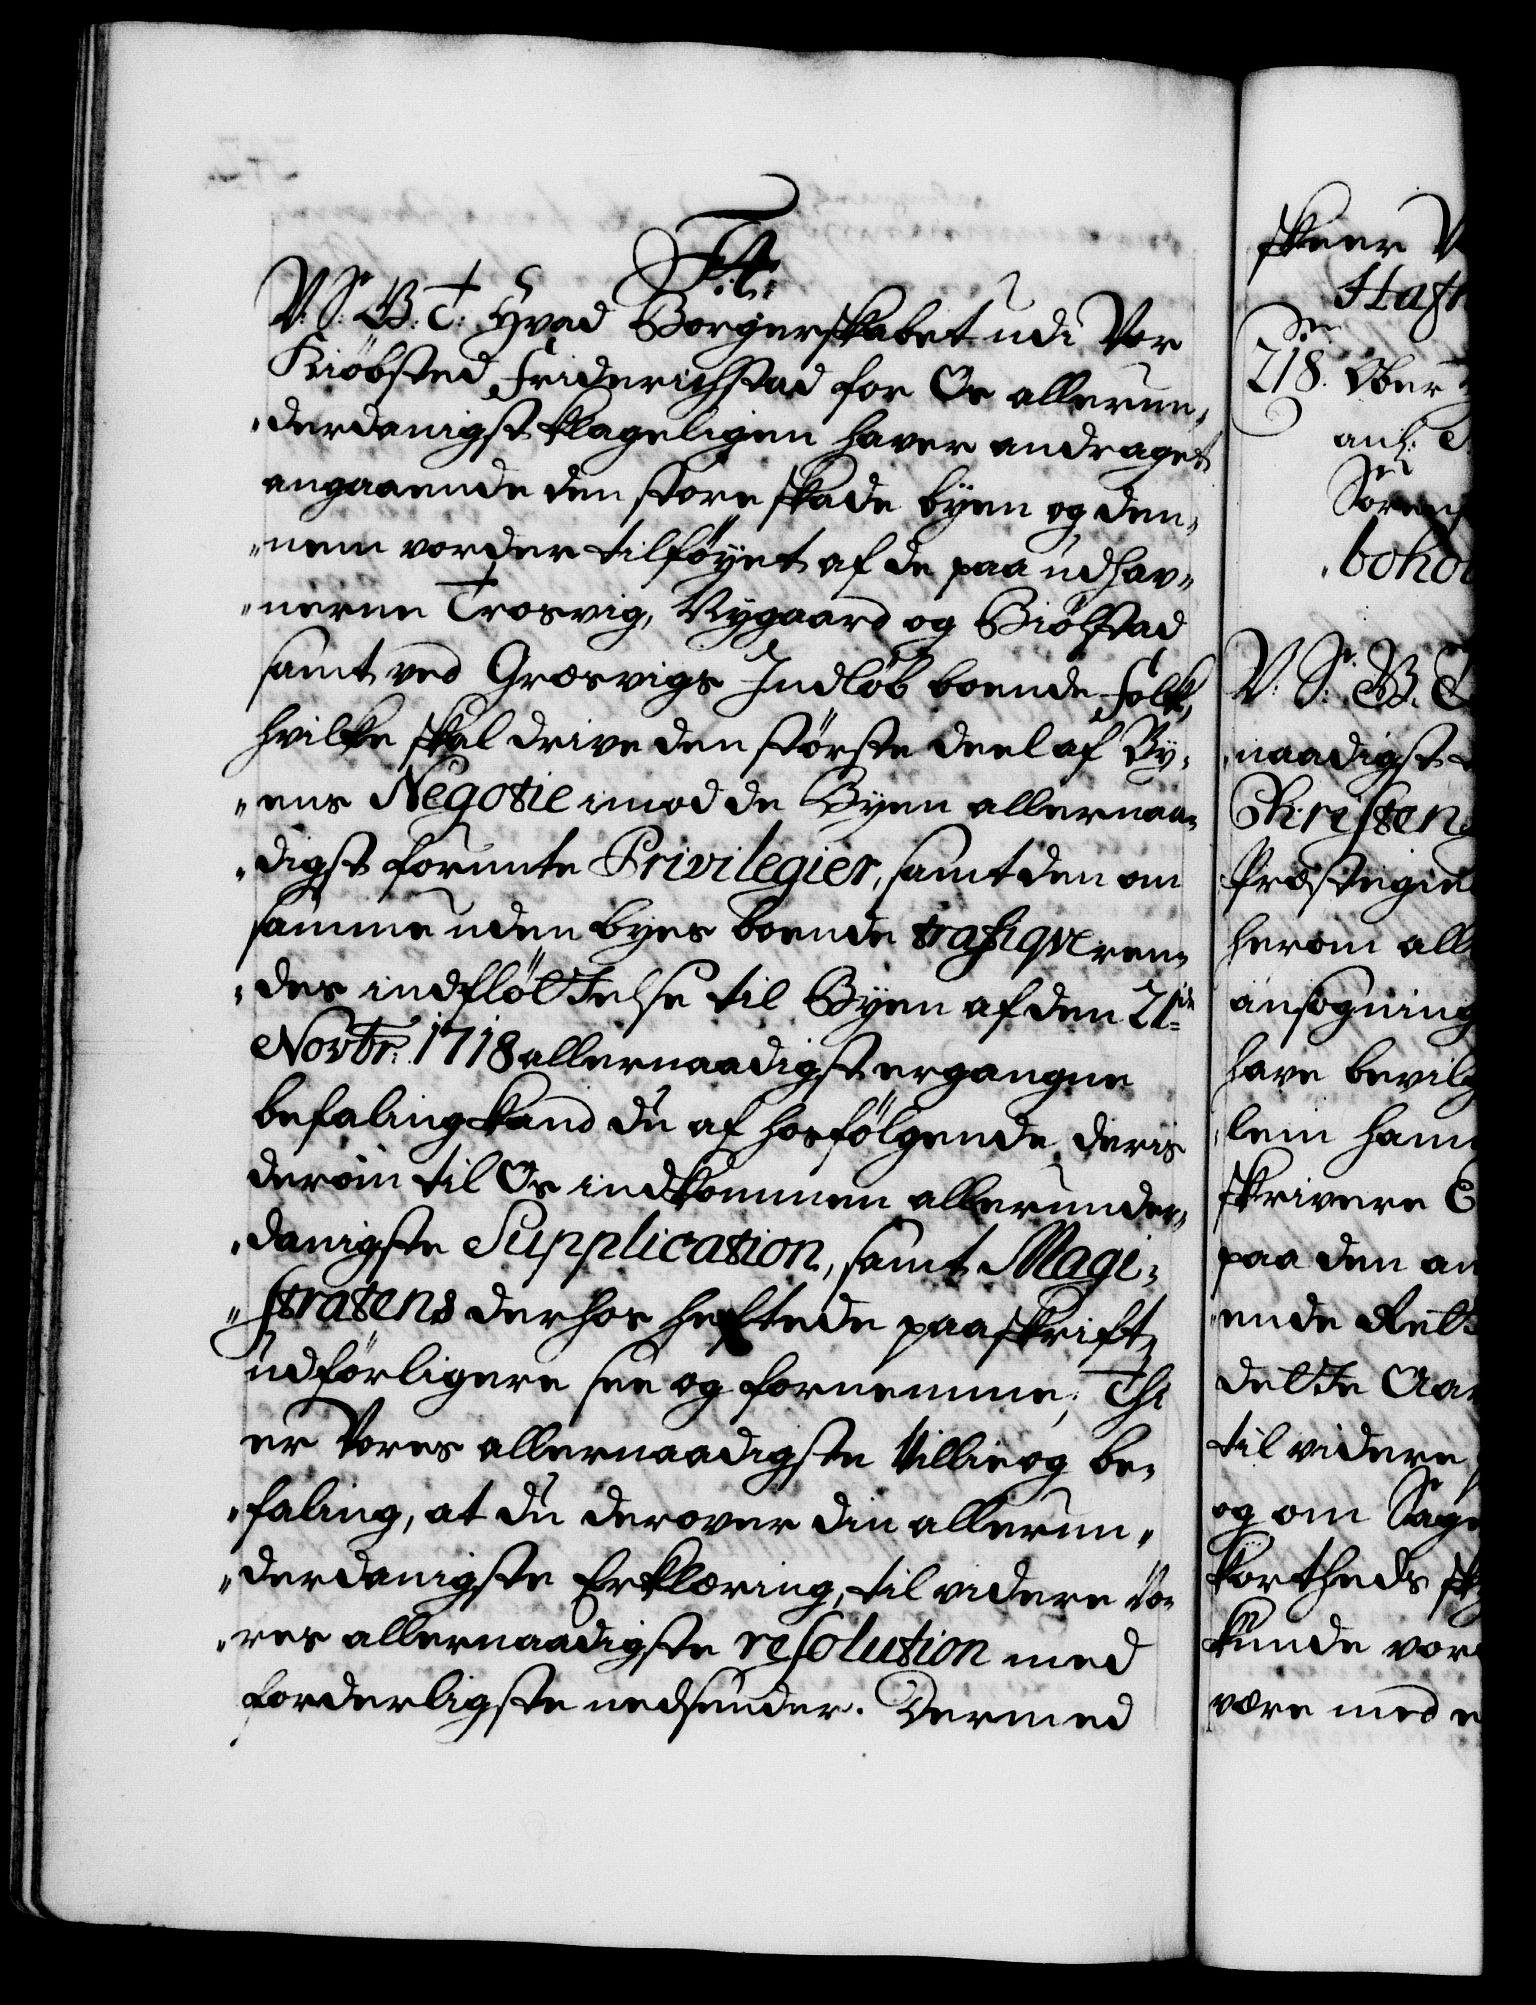 F4.
V: S: B: T: Hvad Borgerskabet udi Vor
Kiöbsted Friderichstad for Os allerun¬
derdanigst klageligen haver andraget
angaaende den store skade byen og den¬
nem vorder tilföyet af de paa udhav¬
nerne Trosvig, Nygaard og Biölstad
samt ved Græsvigs Indlöb boende Folk,
hvilke skal drive den störste deel af By¬
ens Negotie imod de Byen allernaa¬
digst forunte Privilegier, samt den om
samme uden byes boende trafiqveren¬
des indfløttelse til Byen af den 21de
Novbr: 1718 allernaadigst ergangne
befaling kand du af hosfölgende deris
derom til Os indkommen allerunder¬
danigste Supplication, samt Magi¬
stratens derhos heftede paaskrift
udförligere see og fornemme; Thi
er Vores allernaadigste Villie og be¬
faling, at du derover din allerun¬
derdanigste Erklæring, til videre Vo¬
res allernaadigste resolution med
forderligste nedsender. Dermed
skeer V
Hafn
218. Ober
anl:
Sören
behol
V: S: B: T
naadigst
Christen
Præstegie
herom all
ansögning
have bevilg
lem ham
skrivere
paa den an
ende Rett
dette Aar
til videre
og om Sage
kortheds sk
kunde vor
være med e